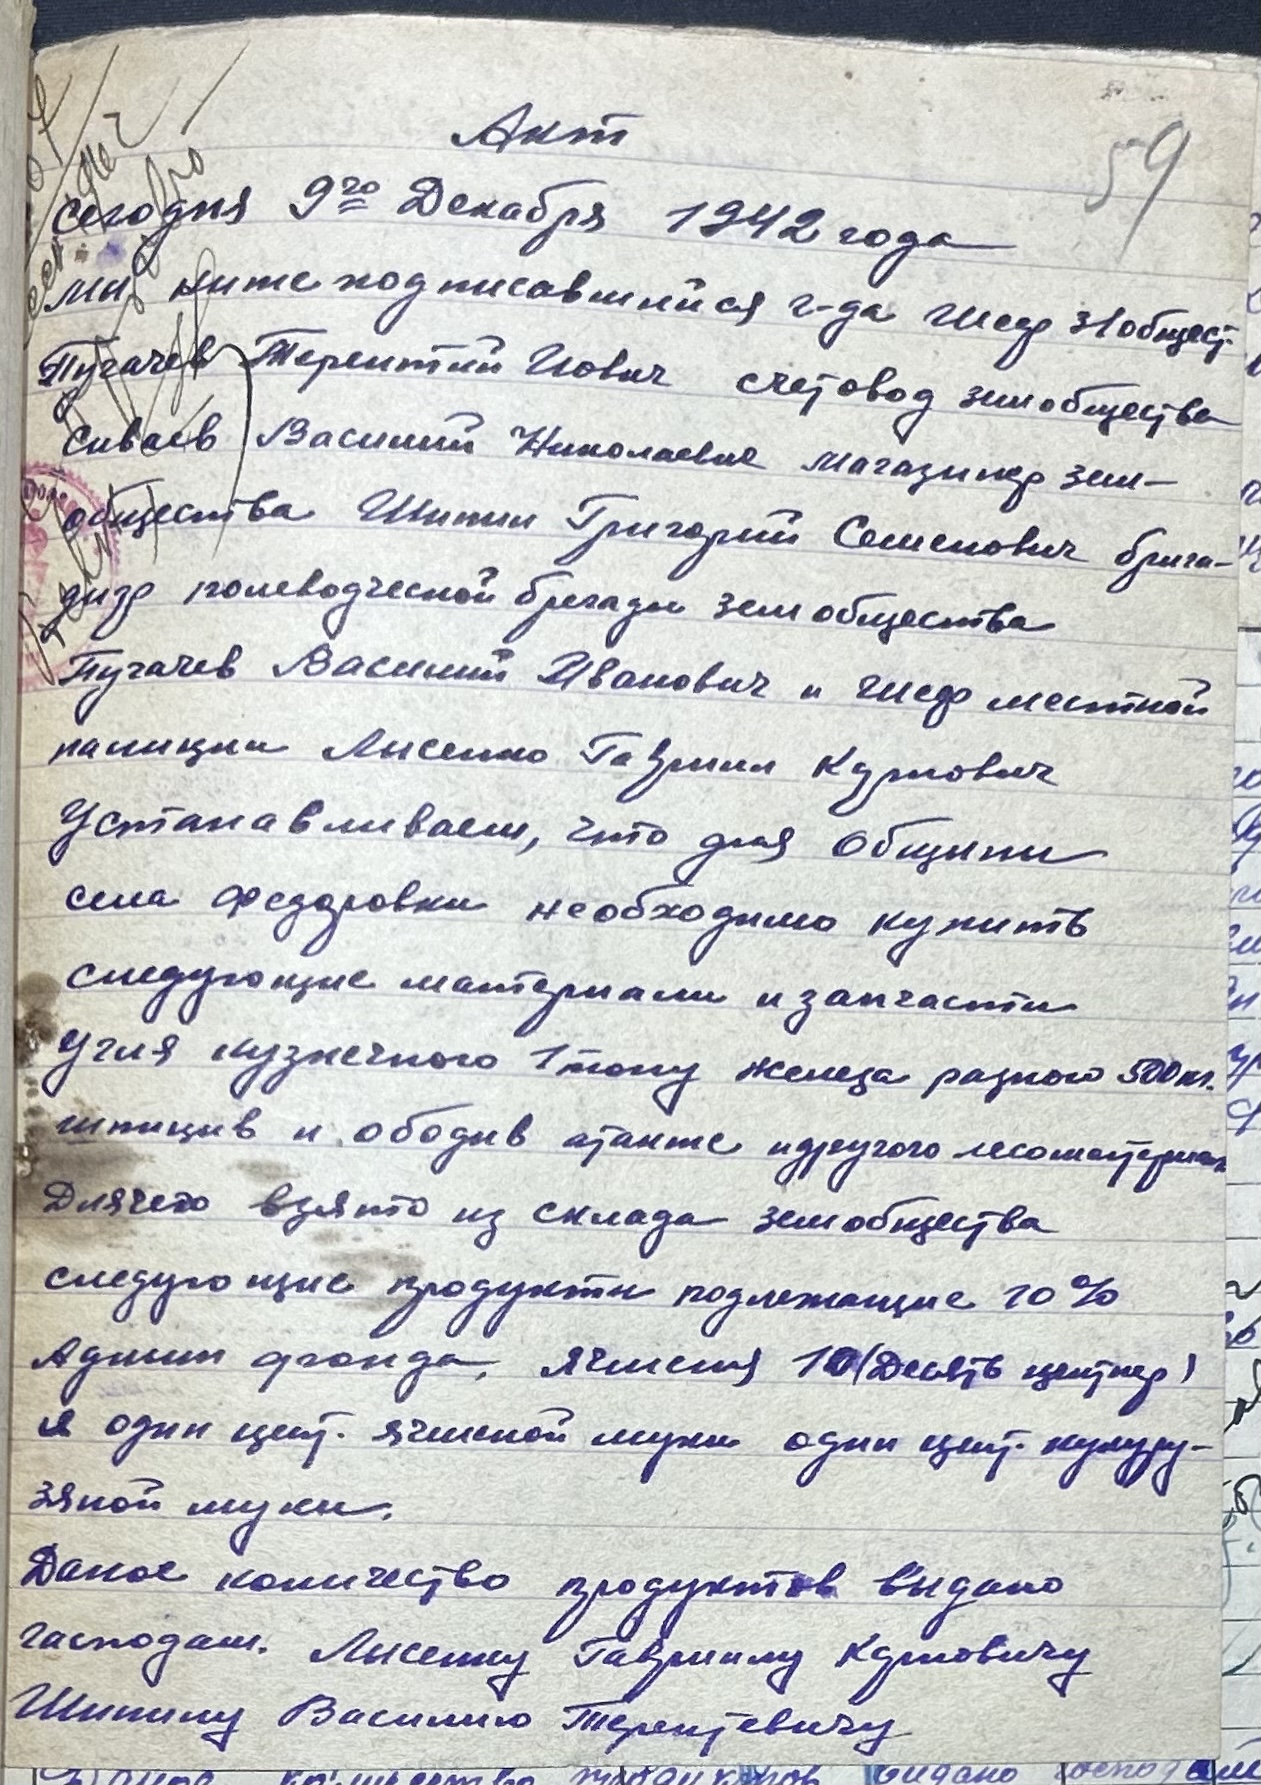 59
Акт
сегодня 9го Декабря 1942 года
ми ниже подписавшийся г-да шеф Зюбщест.
Пугачев Терентий Иович счетовод земобщества
Сиваев Василий Николаевич магазинер зем-
общества Шипил Григорий Семенович брига-
дир полеводческой бригади земобщества
Пугачев Василий Иванович и шеф местной
палиции Лисенко Гавриил Карпович
Устанавливаем, что для Общини
села Федоровки необходимо купить
следующие материали и запчасти
Угля кузнечного 1 тону железа разного 500 кг.
шпицив и ободив атакже идругого лесоматериал
Длячего взято из склада земобщества
следующие продукти подлежащие 10%
Админ фонда, ячменя 10 (Десять центнер)
и один цент. ячменой муки один цент. кукуру-
зяной муки.
Даное количество продуктов видано
гасподам. Лисенку Гавриилу Карповичу
Шипилу Василию Терентевичу